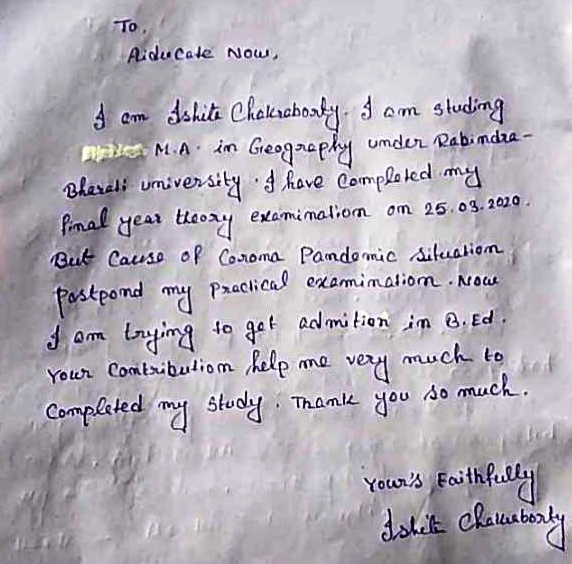 To,
Aiducate Now,
I am Ishita Chakraborty. I am studing
M.A. in Geography under Rabindra-
Bharati university. I have Completed my
final year theory examination on 25.03.2020.
But Cause of Corona Pandemic situation
postpond my practical examination. Now
I am trying to get admition in B.Ed.
Your Contribution help me very much to
Completed my study. Thank you so much.
Your's Faithfully
Ishita Chakraborty